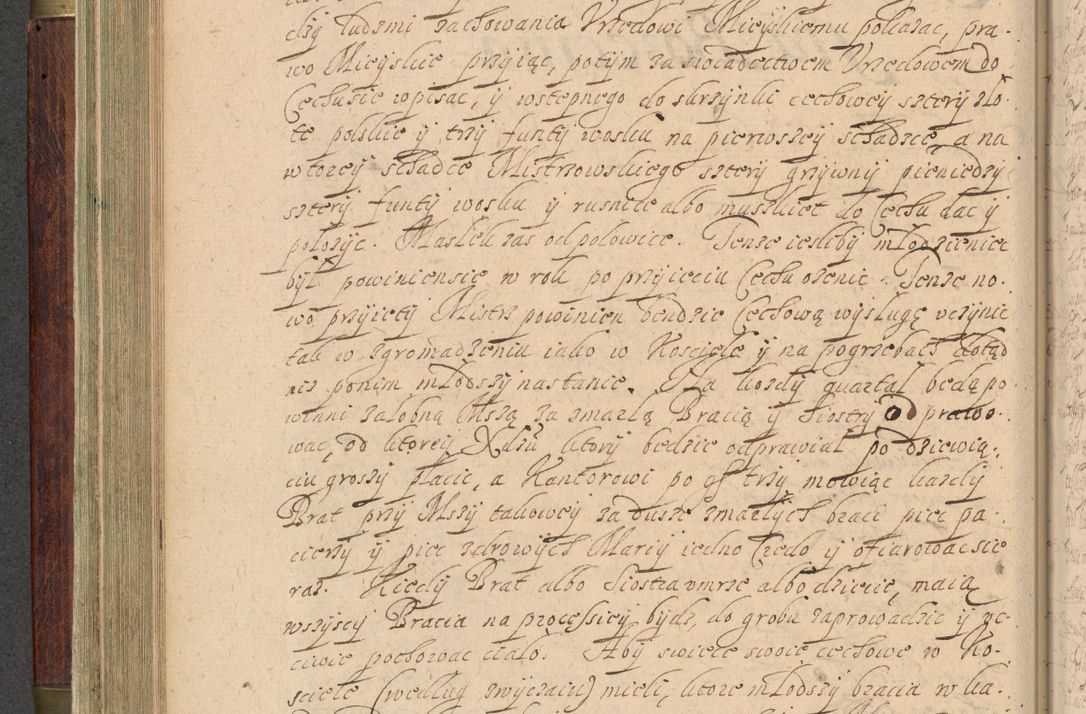 ckiy ludzmi zachowania Vrzędowi Mieyskiemu pokazac, pra-
wo Mieyskie przyiąc, potym za swiadectwem Vrzedowem do
Cechu sie wpisac, ÿ wstepnego do skrzynki cechowey sztery zło-
te polskie ÿ trzy funty wosku na pierwszey schadzce, a na
wtorey schadce Mistrzowskiego sztery grzywny pieniedzy
sztery funty wosku ÿ rusnice albo muszkiet do Cechu dac ÿ
położyc. Maslek zas od połowice. Tenze iesliby młodzieniec
był powinien sie w rok po przyieciu Cechu ozenic. Tenze no-
wo przyiety Mistrz powinien bendzie Cechową wysługę vczynic
tak w zgromadzeniu iako w Kosciele ÿ na pogrzebach dotąd
nez ponim młodszy nastanie. Na kozdy quartal będą po-
winni załobną Mszą za zmarłą Bracią ÿ Siostry odprawo-
wac, od ktorey Xdzu ktory bedzie odprawiał po dziewią-
ciu groszy płacic, a Kantorowi po gſ trzy mowiąc kazdy
Brat przy Mszy takowey za dusze zmarłych braci piec pa-
cierzy ÿ piec zdrowych Mariy iedno Credo ÿ ofiarowac sie
raz. Kiedy Brat albo Siostra vmrze albo dziecie, maią
wszyscy Bracia na processiey bydz, do grobu zaprowadzic ÿ vc-
ciwie pochowac ciało. Aby swiece swoie cechowe w Ko-
sciele (według zwyczaiu) mieli, ktore młodszy bracia w ka-